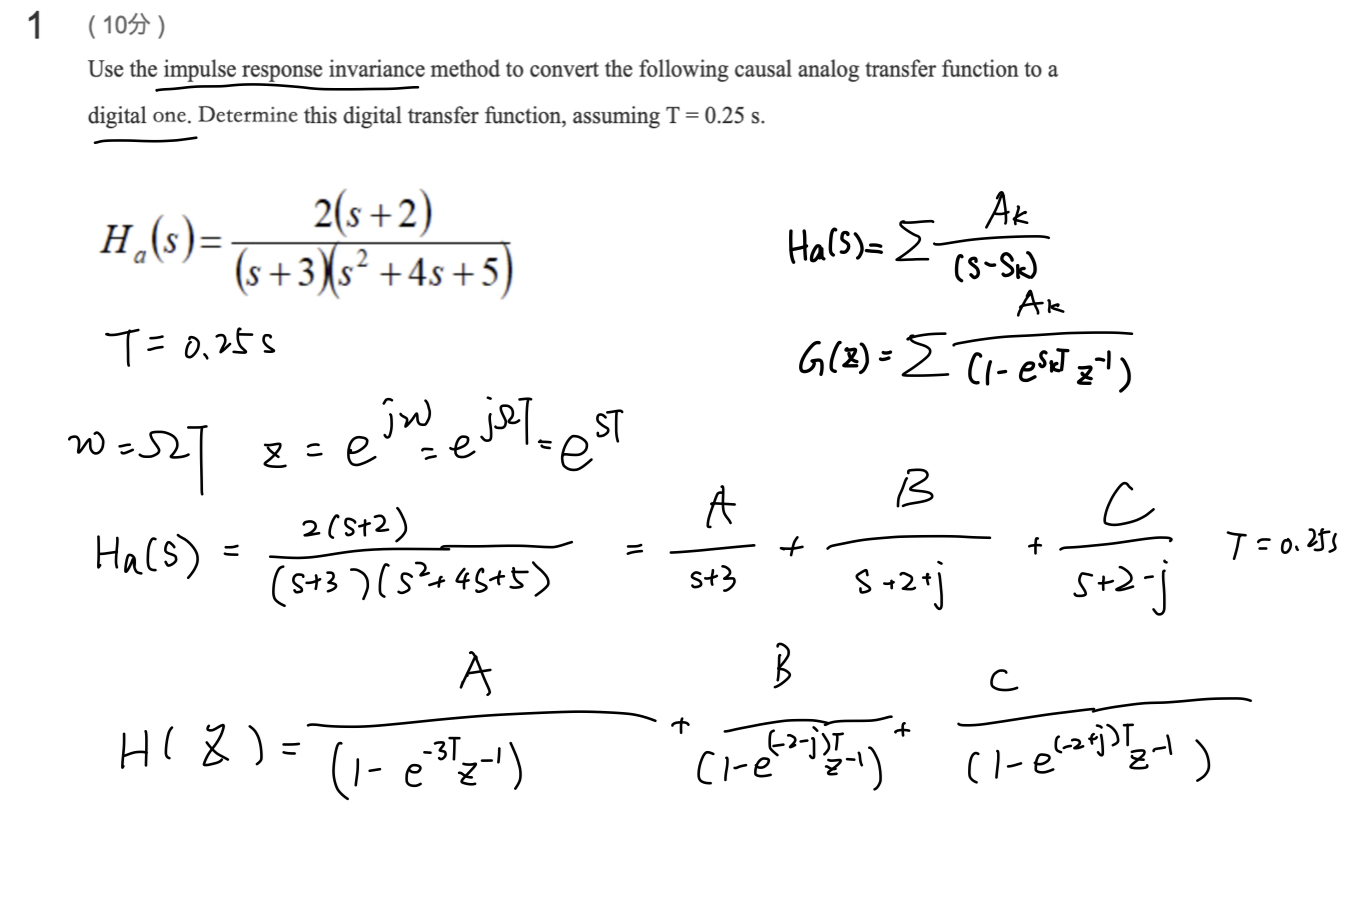 1 (10分)
Use the impulse response invariance method to convert the following causal analog transfer function to a
digital one. Determine this digital transfer function, assuming T = 0.25 s.
Hₐ(s)= 2(s+2) / (s+3)(s² +4s+5)
Ha(s)= Σ Ak / (s-sk)
T = 0.25s
G(z) = Σ Ak / (1- e^{skT} z⁻¹)
w = ΩT z = e^{jw} = e^{jΩT} = e^{sT}
Ha(s) = 2(s+2) / (s+3)(s²+4s+5) = A / s+3 + B / s+2+j + C / s+2-j T = 0.25s
H(z) = A / (1- e^{-3T} z⁻¹) + B / (1-e^{(-2-j)T} z⁻¹) + C / (1-e^{(-2+j)T} z⁻¹)